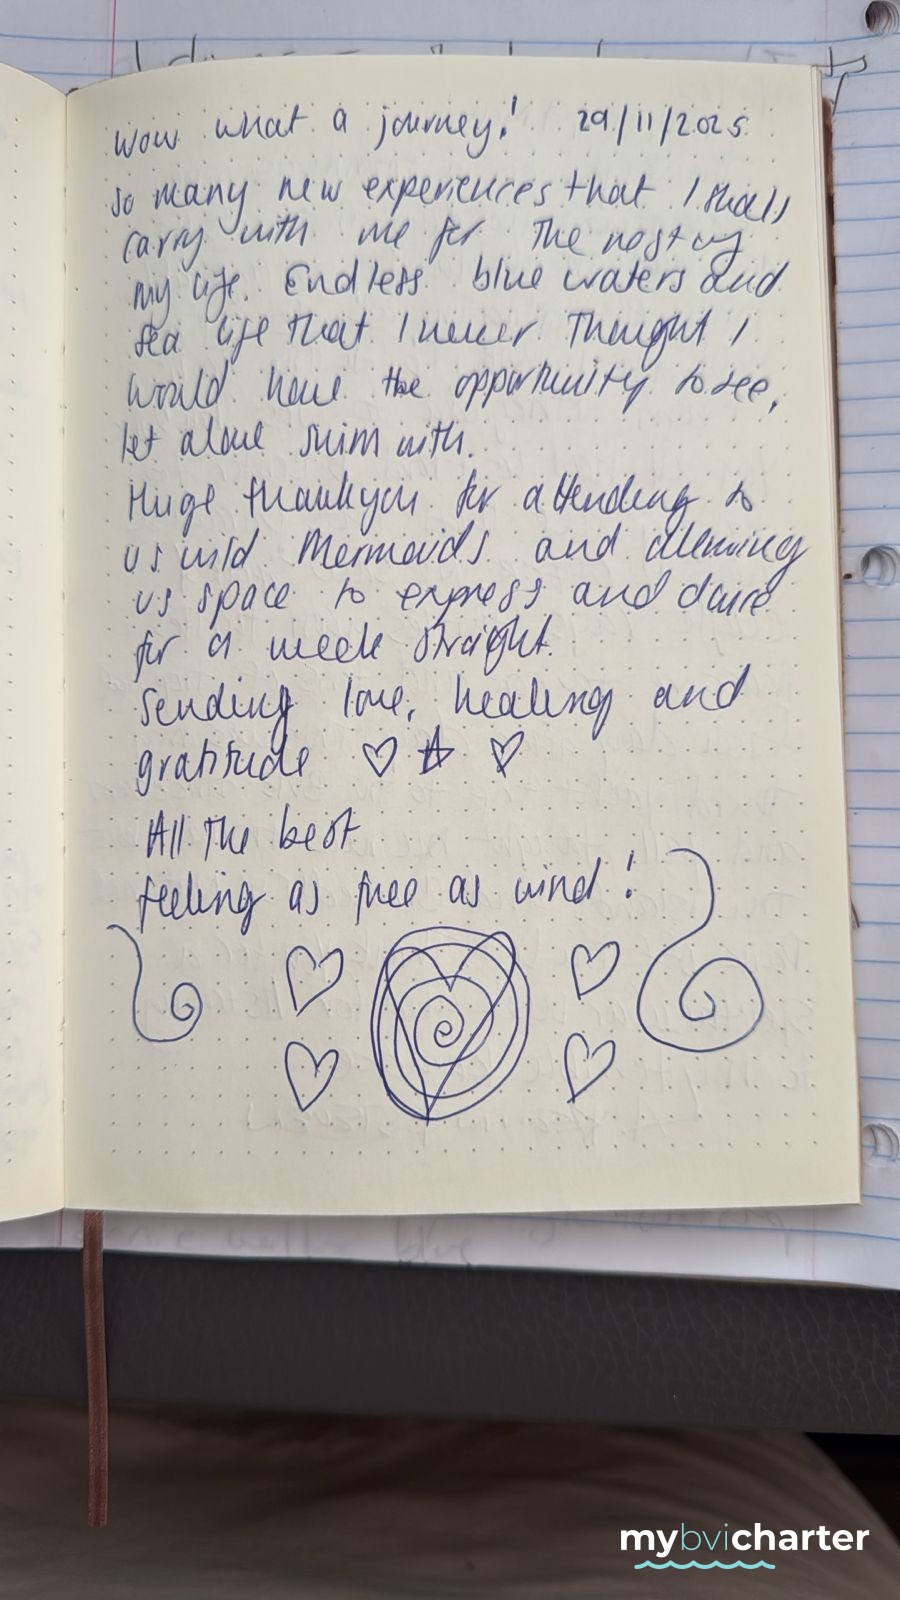 Wow what a journey! 29/11/2025
So many new experiences that I shall
carry with me for the rest of
my life. Endless blue waters and
sea life that I never thought I
would have the opportunity to see,
let alone swim with.
Huge thankyou for attending to
us wild Mermaids and allowing
us space to express and dance
for a week straight.
Sending love, healing and
gratitude
All the best
feeling as free as wind!
mybvicharter